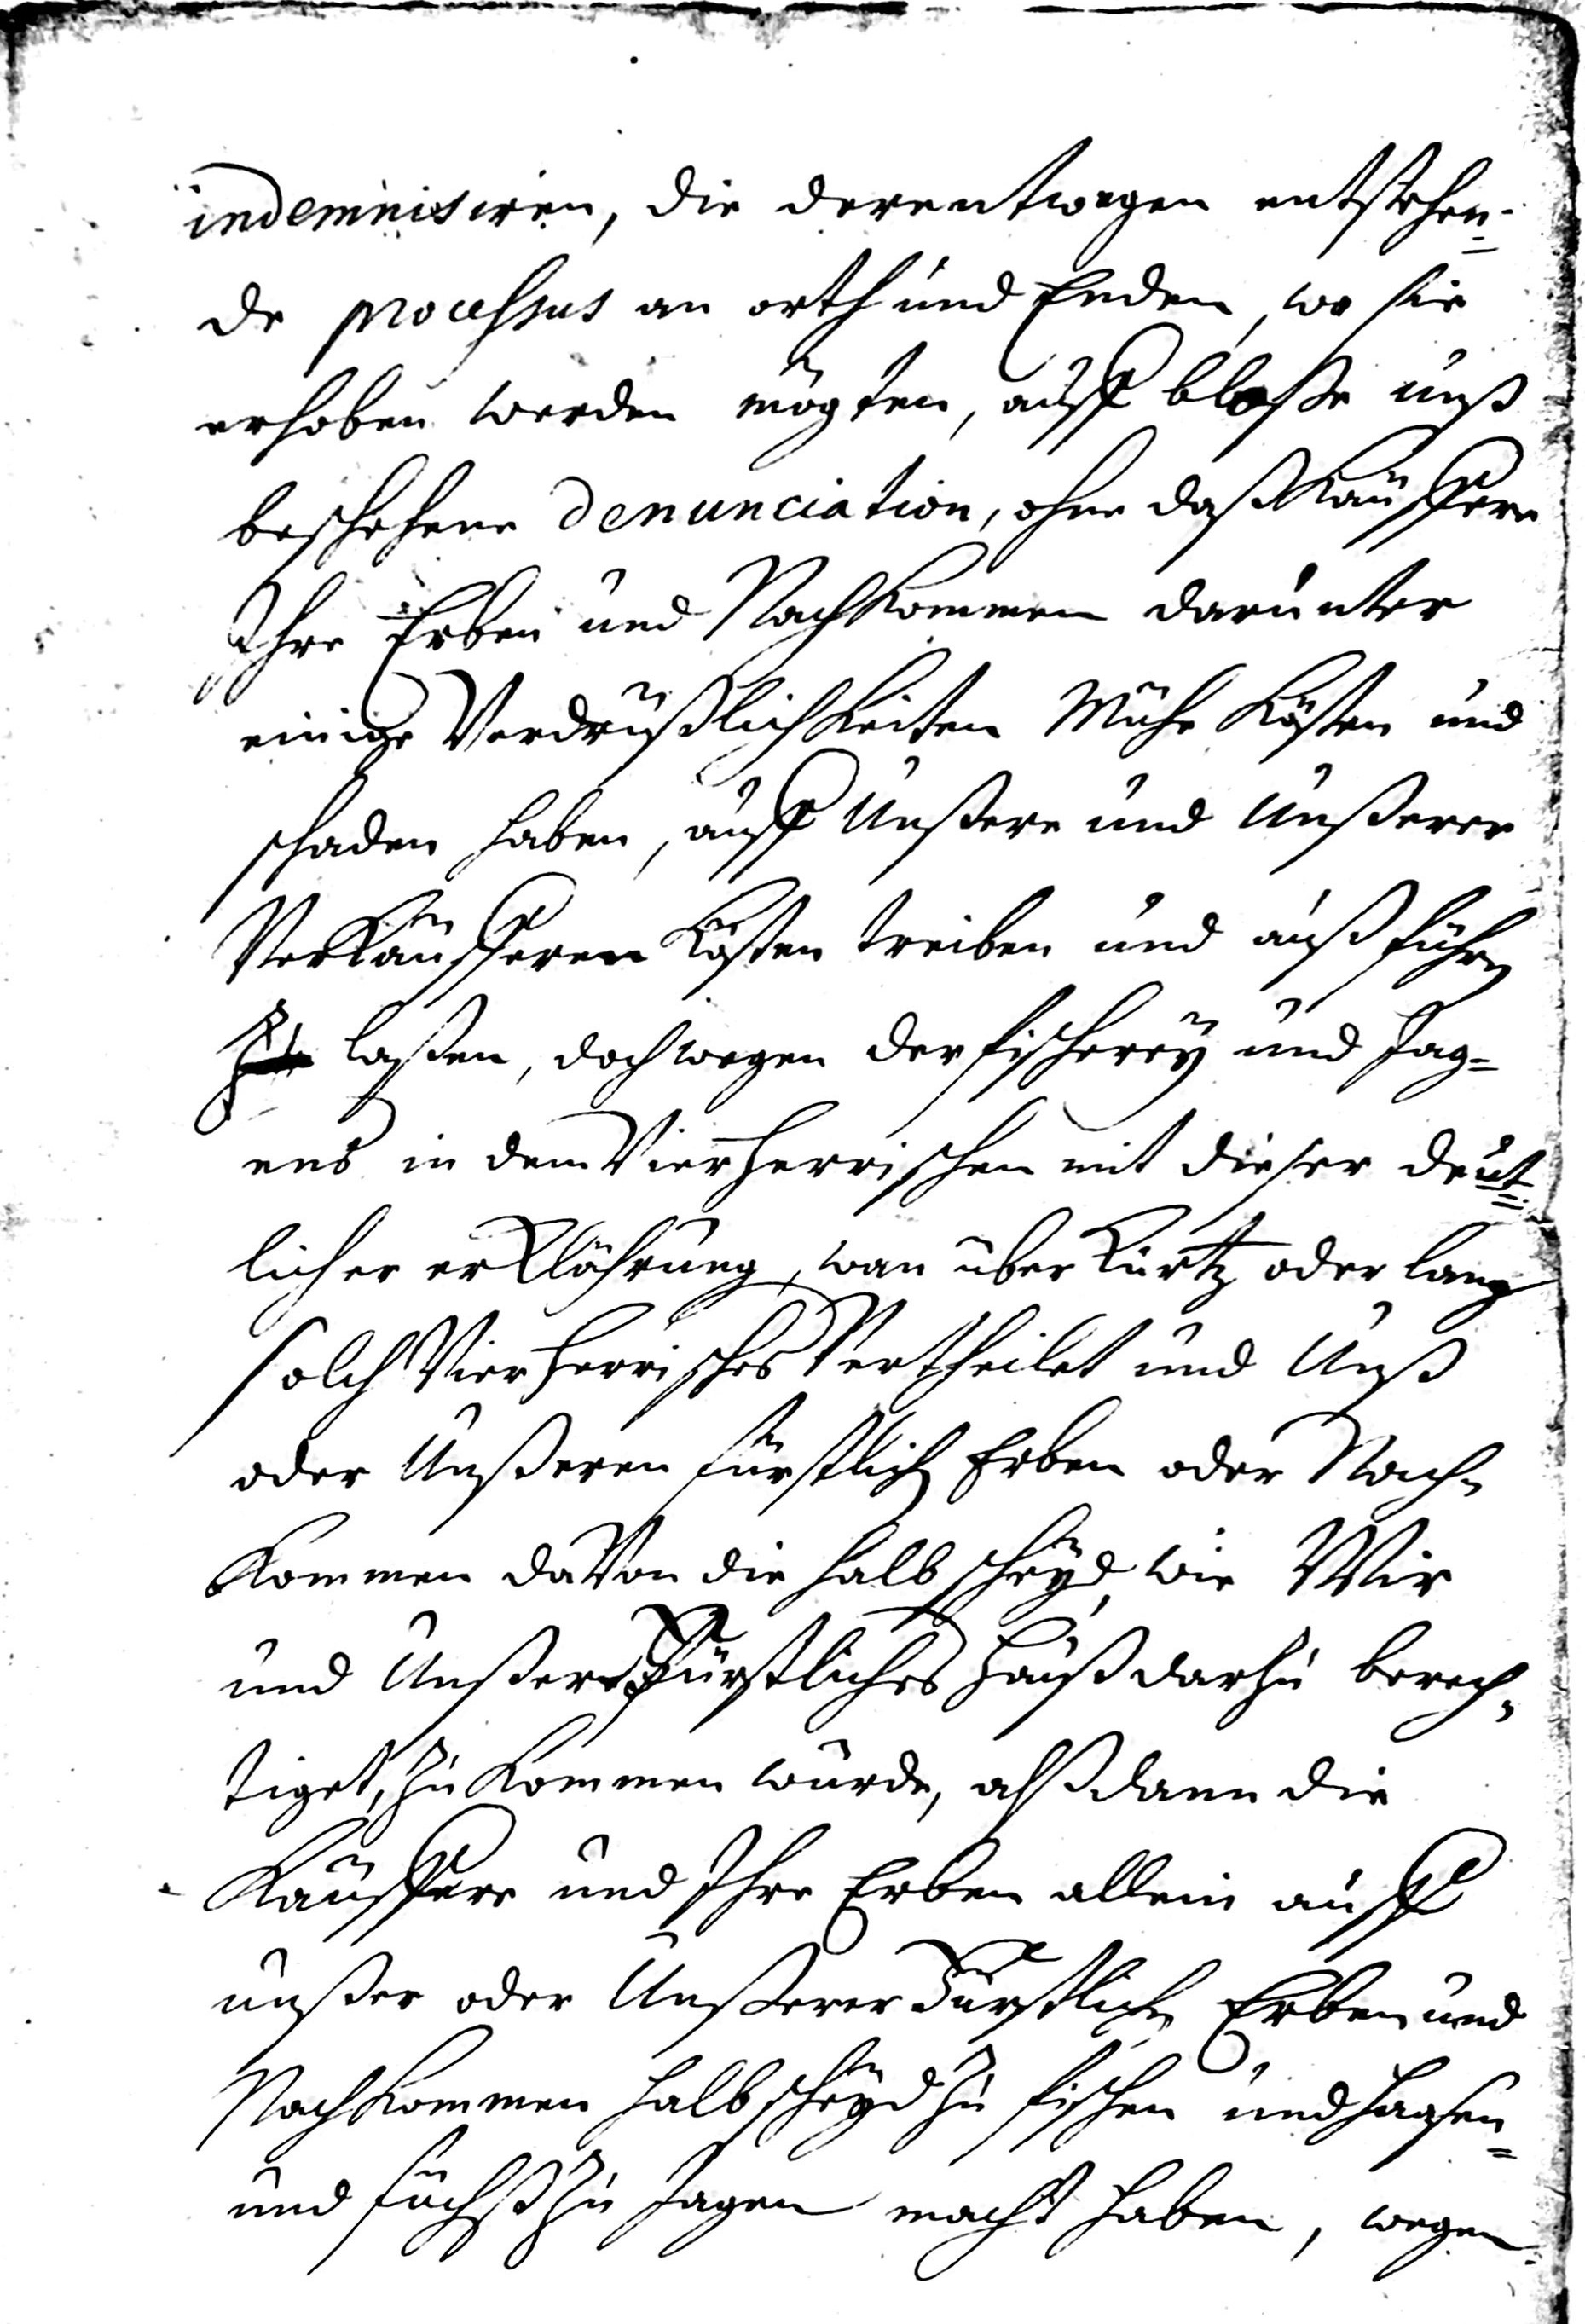 indemnisiren, die derentwegen entstehen-
de processus an orth und Enden, wo sie
erhoben werden mögten, auff bloße unß
beschehene denunciation, ohne daß Käuffere
Ihre Erben und Nachkommen darunter
einige Verdrüßlichkeiten Mühe Kösten und
schaden haben, auff Unßere und Unßerer
Verkäufferen Kösten treiben und außführen
laßen, doch wegen der fischereÿ und Jag=
ens in dem Vierherrischen mit dieser deut=
licher erklährung, wan über kurtz oder lang
solch Vierherrisches Vertheilet und Unß
oder Unßeren fürstlich Erben oder Nach=
kommen davon die halbscheÿd, wie Wir
und Unßer Fürstliches Hauß darzu berech=
tiget, zu kommen würde, alßdann die
Käuffere und Ihre Erben allein auff
unßer oder Unßerer Fürstlichen Erben und
Nachkommen halbscheÿd zu fischen und Haasen=
und füchß zu Jagen macht haben, wegen